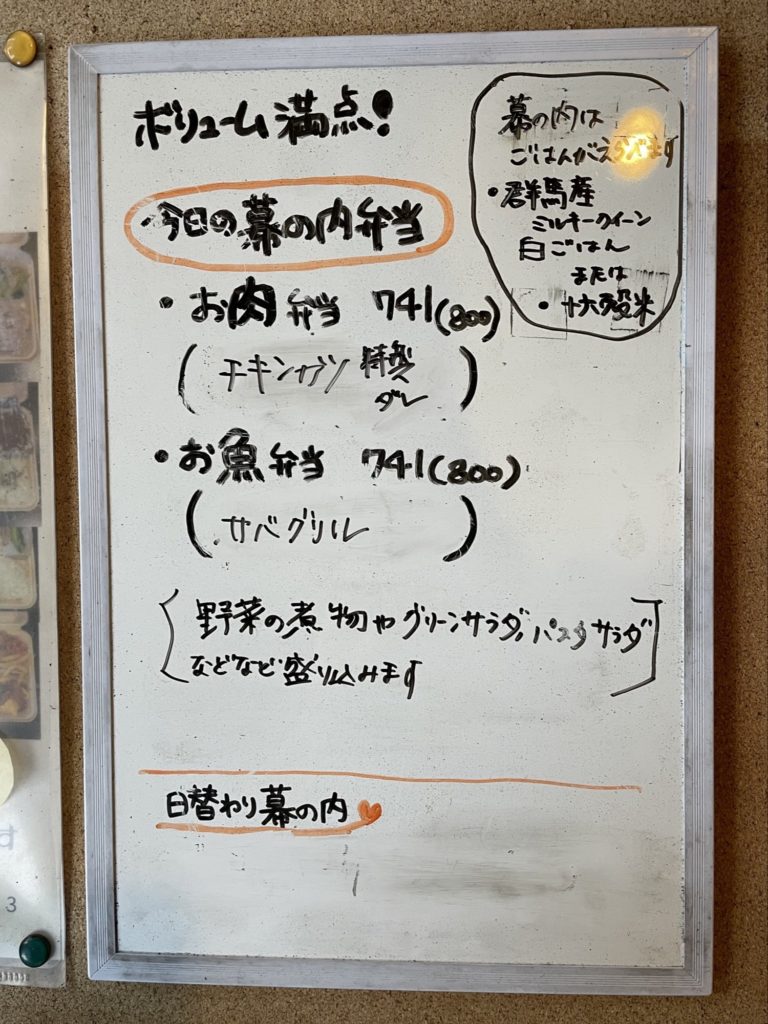 ボリューム満点!
今日の幕の内弁当
・お肉弁当 741(800)
(チキンカツ 特製
ダレ)
・お魚弁当 741(800)
(サバグリル)
[野菜の煮物やグリーンサラダ,パスタサラダ
などなど盛り込みます]
日替わり幕の内
幕の内は
ごはんがえらべます
・群馬産
ミルキークイーン
白ごはん
または
・十六穀米
す
3